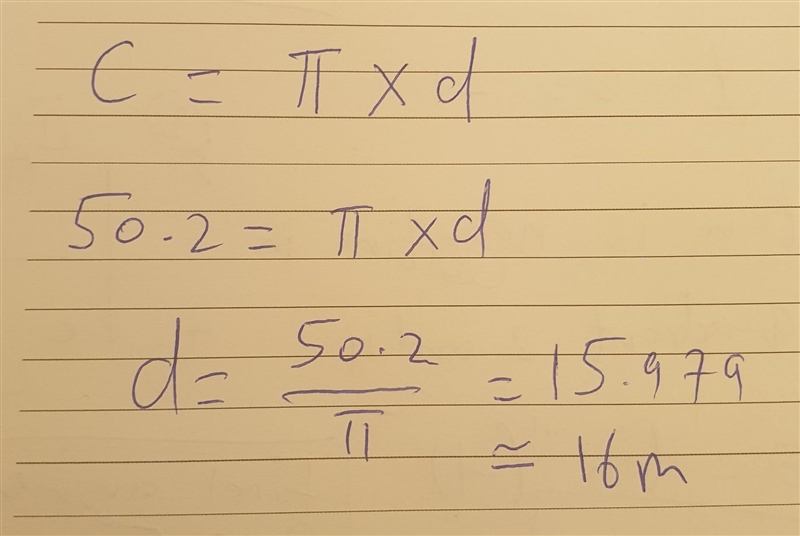 C = π × d
50.2 = π × d
d = 50.2/π = 15.979
≃ 16m